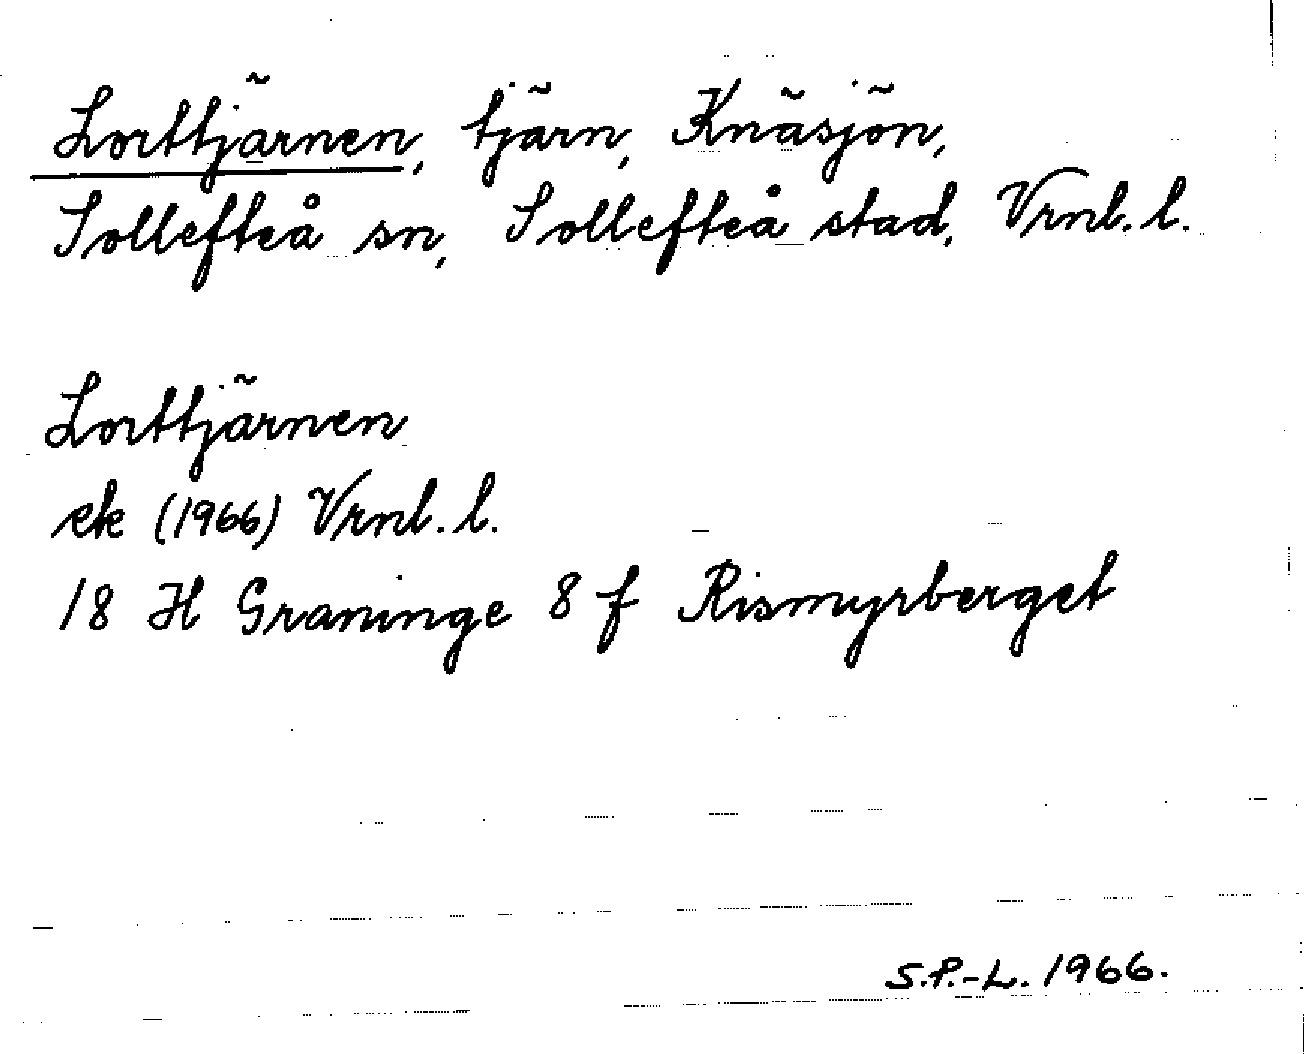 Lorttjärnen, tjärn, Knäsjön,
Sollefteå sn, Sollefteå stad, Vrnl. l.
Lorttjärnen
ek (1966) Vrnl. l.
18 H Graninge 8 f Rismyrberget
S.P.-L. 1966.